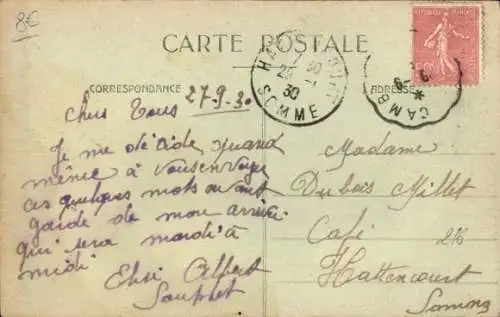 8€
CARTE POSTALE
CORRESPONDANCE
ADRESSE
SOMME
30
CAMB
Chers Tous 27-9-30
Je me décide quand
même à vous envoyer
ces quelques mots
garde de mon arrivée
qui sera mardi à
midi
Albert
Madame
Dubois Millet
Café
Hattencourt
Somme